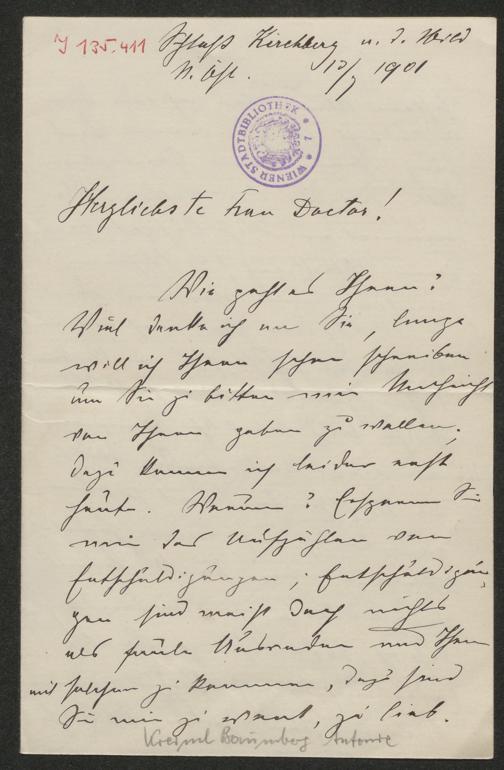 J 135.411
Schloß Kirchberg a. d. Wild
N. Öst. 12/7 1901
WIENER STADTBIBLIOTHEK
Herzlichste Frau Doctor!
Wie geht es Ihnen?
Viel denke ich an Sie, lange
will ich Ihnen schon schreiben
um Sie zu bitten mir Nachricht
von Ihnen geben zu wollen.
Dazu komme ich leider erst
heute. Warum? Ersparen Sie
mir das Aufzählen von
Entschuldigungen; Entschuldigun-
gen sind meist doch nichts
als faule Ausreden und Ihnen
mit solchen zu kommen, dazu sind
Sie mir zu wert, zu lieb.
Baumberg Antonie